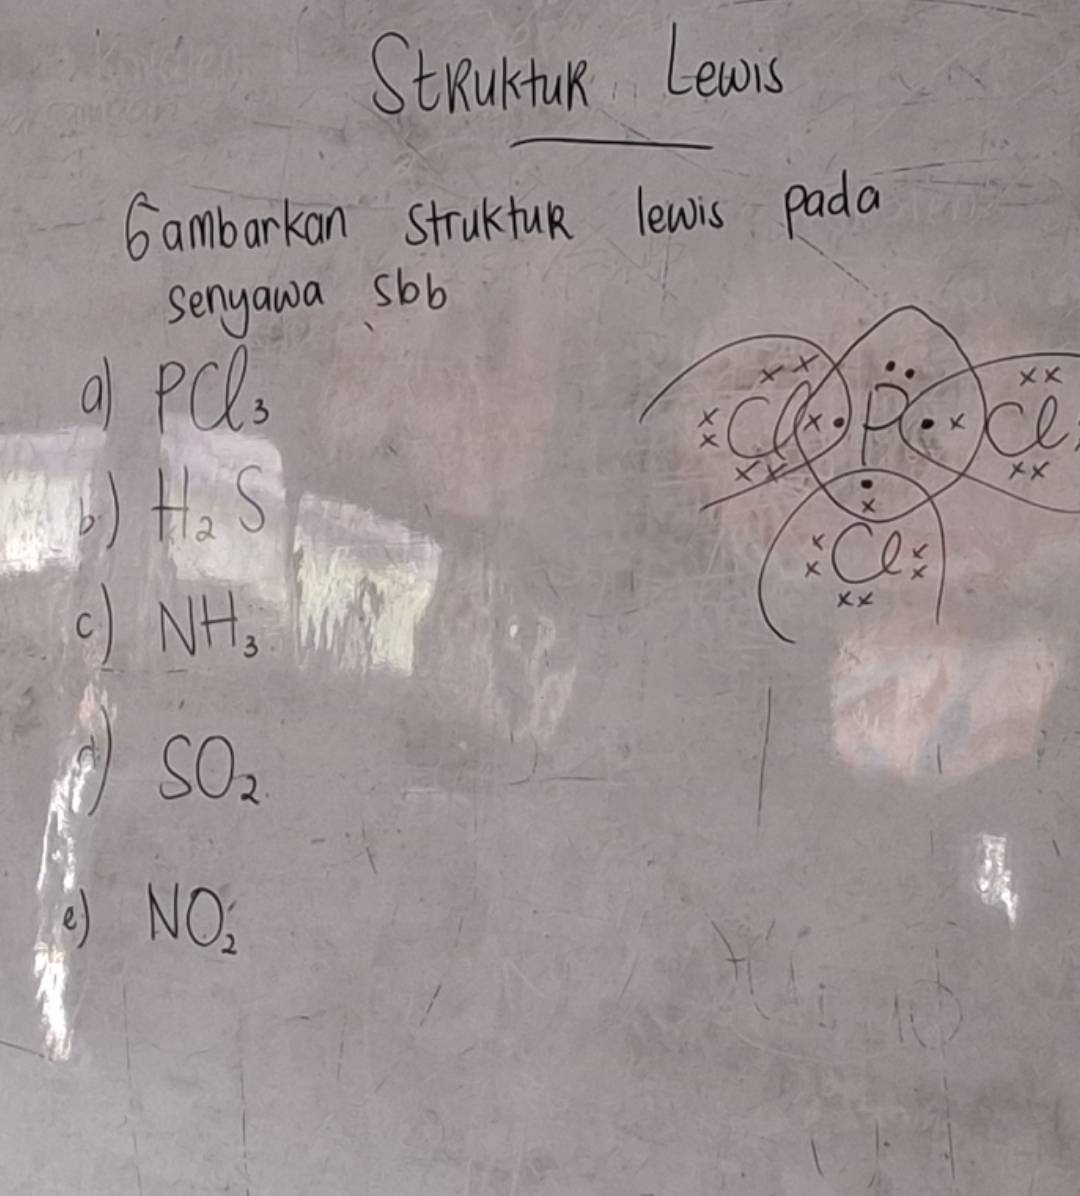 Struktur Lewis
Gambarkan struktur lewis pada
senyawa sbb
a) PCl₃
b) H₂S
c) NH₃
d) SO₂
e) NO₂
Cl P Cl
Cl